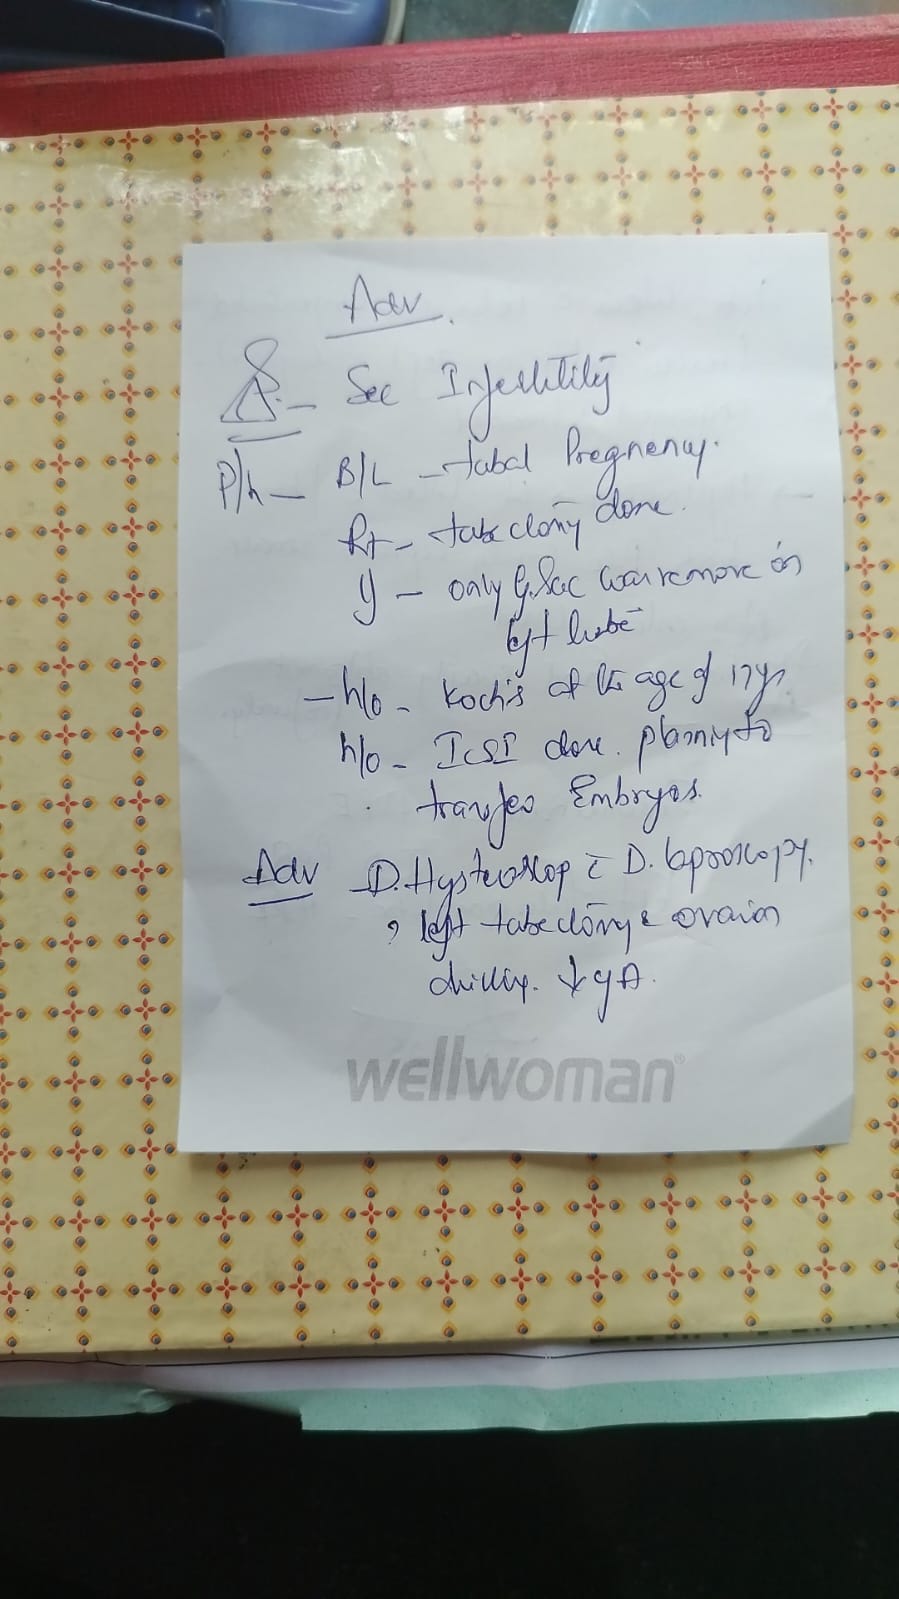 Adv.
Sec Infertility
P/h - B/L - tubal Pregnency.
Rt - tubectomy done.
only G.Sac was remove in
left tube
- h/o - Koch's at the age of 17yr
h/o - ICSI done. planning to
transfer Embryos.
Adv D. Hysteroscop c̄ D. laproscopy.
? left tubectomy & ovarian
drilling. GA.
wellwoman®